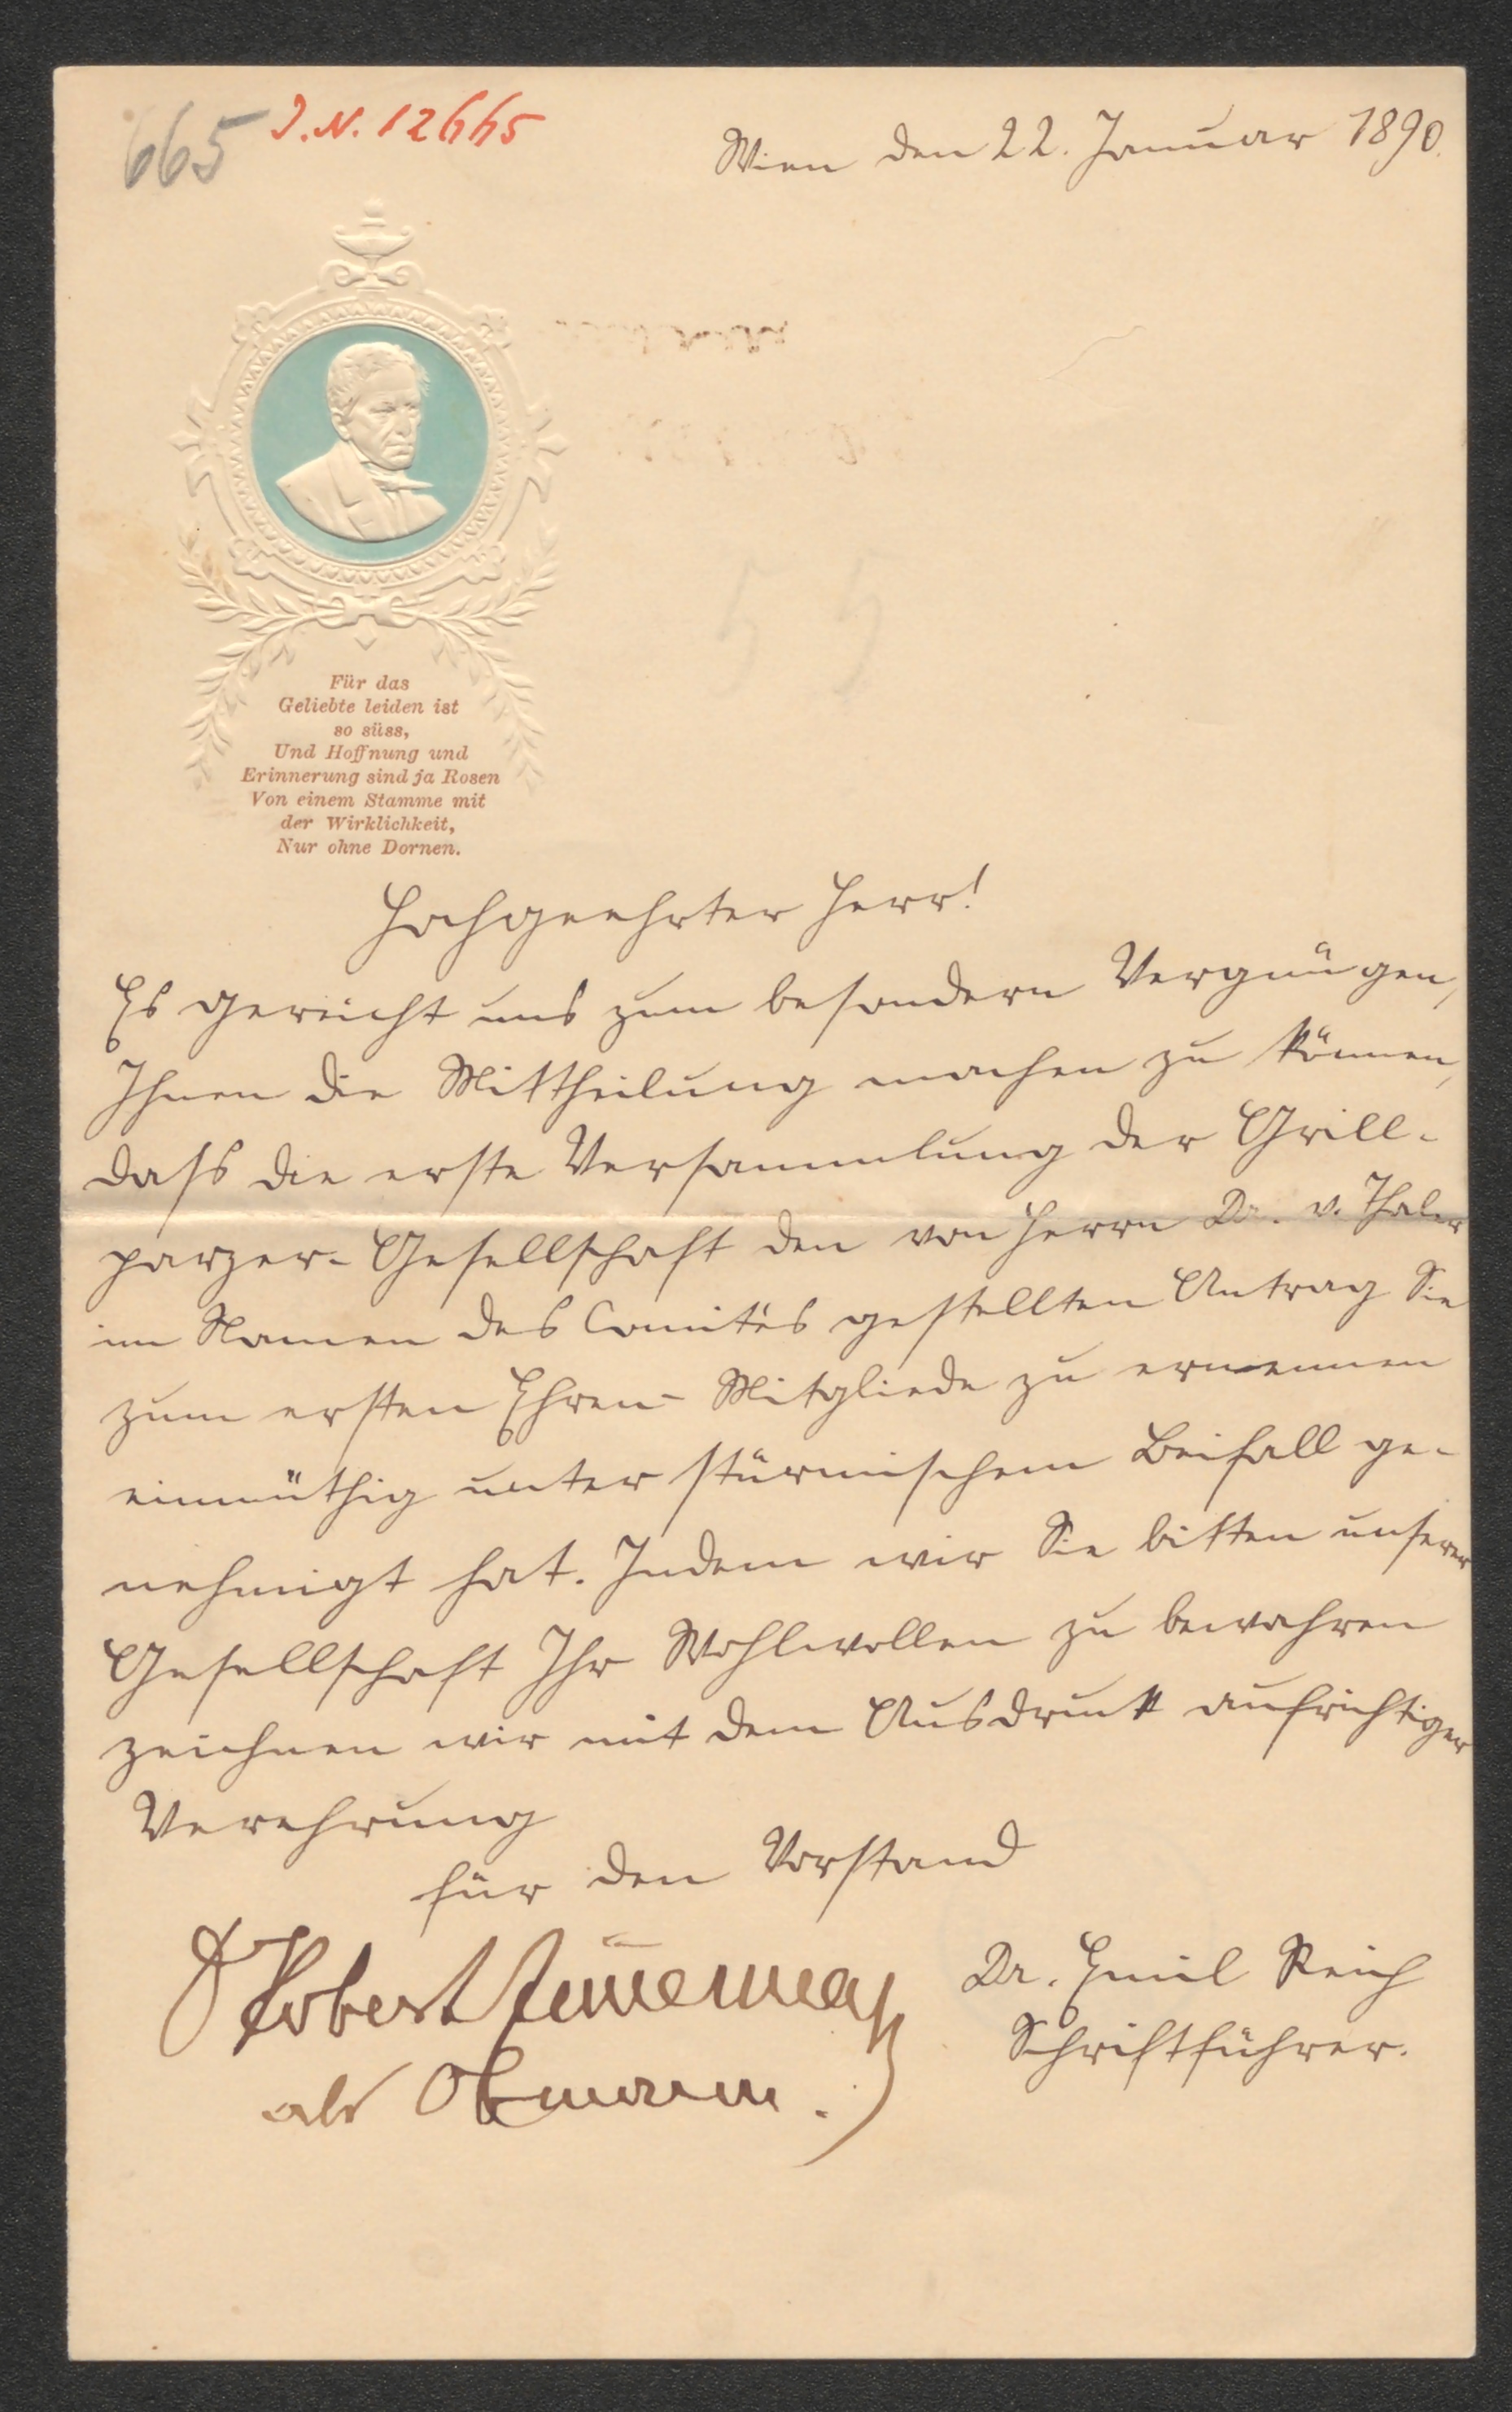 665
J.N. 12665
Wien den 22. Januar 1890.
Für das
Geliebte leiden ist
so süss,
Und Hoffnung und
Erinnerung sind ja Rosen
Von einem Stamme mit
der Wirklichkeit,
Nur ohne Dornen.
Hochgeehrter Herr!
Es gereicht uns zum besondern Vergnügen,
Ihnen die Mittheilung machen zu können,
dass die erste Versammlung der Grill-
parzer-Gesellschaft den von Herrn Dr. v. Thaler
im Namen des Comités gestellten Antrag Sie
zum ersten Ehren-Mitgliede zu ernennen
einmüthig unter stürmischem Beifall ge-
nehmigt hat. Indem wir Sie bitten unserer
Gesellschaft Ihr Wohlwollen zu bewahren
zeichnen wir mit dem Ausdruck aufrichtiger
Verehrung
für den Vorstand
Robert Zimmermann
als Obmann.
Dr. Emil Reich
Schriftführer.